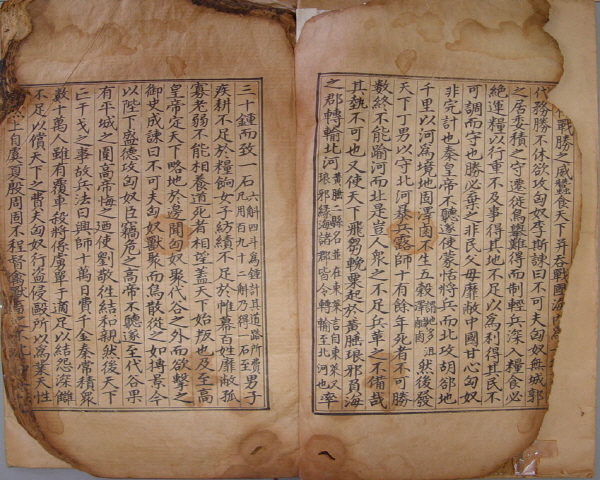 戰勝之威蠶食天下并吞戰國海
代務勝不休欲攻匈奴李斯諫曰不可夫匈奴無城郭
之居委積之守遷徙鳥舉難得而制輕兵深入糧食必
絕運糧以行重不及事得其地不足以為利得其民不
可調而守也勝必棄之非民父母靡敝中國甘心匈奴
非完計也秦皇帝不聽遂使蒙恬將兵而北攻胡郤地
千里以河為境地固澤鹵不生五穀地多沮澤而鹵然後發
天下丁男以守北河暴兵露師十有餘年死者不可勝
數終不能踰河而北是豈人眾之不足兵革之不備哉
其埶不可也又使天下飛芻輓粟起於黃腄琅邪負海
之郡轉輸北河黃腄二縣名並在東萊言自東萊及琅邪緣海諸郡皆令轉輸至北河也率
三十鍾而致一石六斛四斗為鍾計其道路所費凡用百九十二斛乃得一石至男子
疾耕不足於糧餉女子紡績不足於帷幕百姓靡敝孤
寡老弱不能相養道死者相望蓋天下始叛也及至高
皇帝定天下略地於邊聞匈奴聚代谷之外而欲擊之
御史成諫曰不可夫匈奴獸聚而鳥散從之如搏景今
以陛下盛德攻匈奴臣竊危之高帝不聽遂至代谷果
有平城之圍高帝悔之迺使劉敬往結和親然後天下
亡干戈之事故兵法曰興師十萬日費千金秦常積眾
數十萬人雖有覆軍殺將係虜單于適足以結怨深讎
不足以償天下之費夫匈奴行盜侵敺所以為業天性
上自虞夏殷周固不程督禽獸